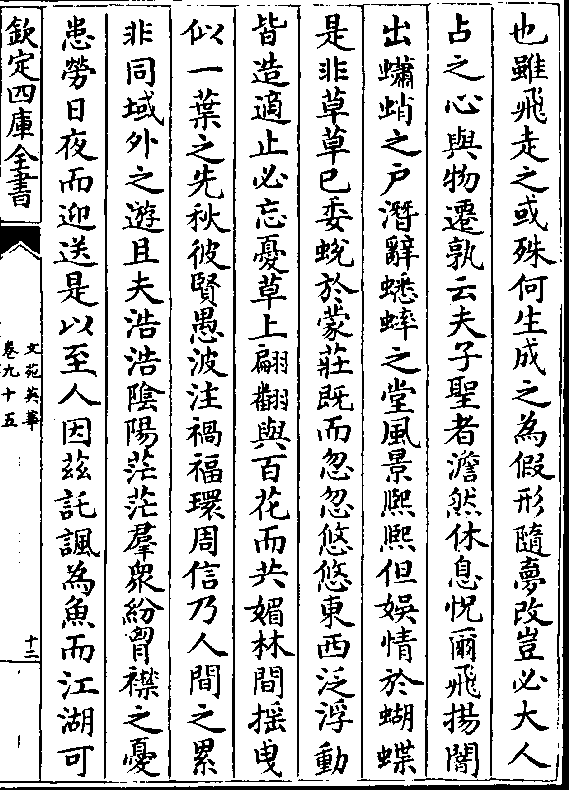 也雖飛走之或殊何生成之為假形隨夢改豈必大人
占之心與物遷孰云夫子聖者澹然休息怳爾飛揚闇
出蠨蛸之户潛辭蟋蟀之堂風景熈熈但娯情於蝴蝶
是非草草已委蛻於蒙莊既而忽忽悠悠東西泛浮動
皆造適止必忘憂草上翩翻與百花而共媚林間揺曳
似一葉之先秋彼賢愚波注禍福環周信乃人間之累
非同域外之遊且夫浩浩陰陽茫茫羣衆紛胷襟之憂
患勞日夜而迎送是以至人因兹託諷為魚而江湖可
欽定四庫全書
文苑英華
卷九十五
十二